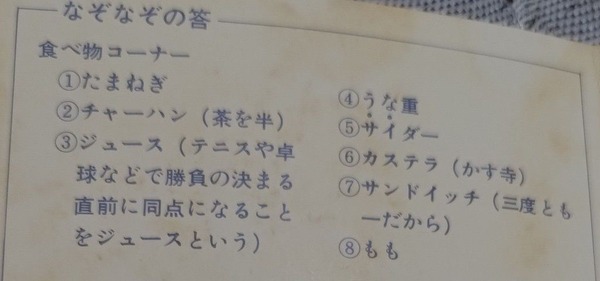 なぞなぞの答
食べ物コーナー
①たまねぎ
②チャーハン（茶を半）
③ジュース（テニスや卓
球などで勝負の決まる
直前に同点になること
をジュースという）
④うな重
⑤サイダー
⑥カステラ（かす寺）
⑦サンドイッチ（三度とも
一だから）
⑧もも